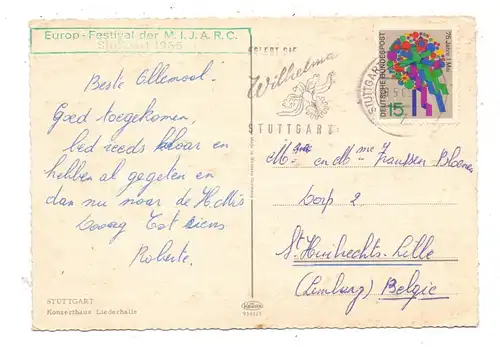 Europ-Festival der M.I.J.A.R.C.
Stuttgart 1965
Beste Allemaal.
Goed toegekomen,
bed reeds klaar en
hebben al gegeten en
dan nu naar de H. Mis
Tot ziens
Roberte.
STUTTGART
Konzerthaus Liederhalle
ERLEBT DIE
Wilhelma
STUTTGART
STUTTGART
75 Jahre 1. Mai
DEUTSCHE BUNDESPOST
15
en Mme Franssen
Dorp 2
St Huibrechts-Lille
(Limburg) Belgie